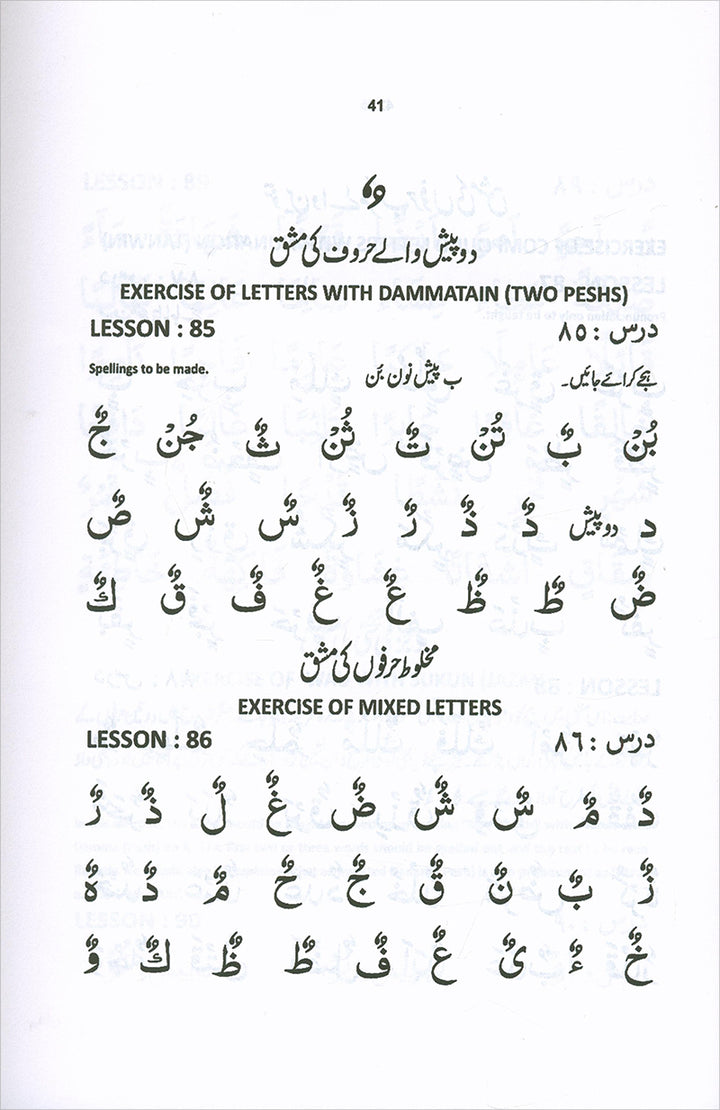 41
ٌ
دو پیش والے حروف کی مشق
EXERCISE OF LETTERS WITH DAMMATAIN (TWO PESHS)
LESSON : 85 درس : ٨٥
Spellings to be made. ب پیش نون بُن ہجے کرائے جائیں۔
بُنْ بٌ تُنْ تٌ ثُنْ ثٌ جُنْ جٌ
د دو پیش دٌ ذٌ رٌ زٌ سٌ شٌ صٌ
ضٌ طٌ ظٌ عٌ غٌ فٌ قٌ كٌ
مخلوط حرفوں کی مشق
EXERCISE OF MIXED LETTERS
LESSON : 86 درس : ٨٦
دٌ مٌ سٌ شٌ ضٌ غٌ لٌ ذٌ رٌ
زٌ بٌ نٌ قٌ جٌ حٌ مٌ دٌ هٌ
خٌ ءٌ ىٌ عٌ فٌ طٌ ظٌ كٌ وٌ